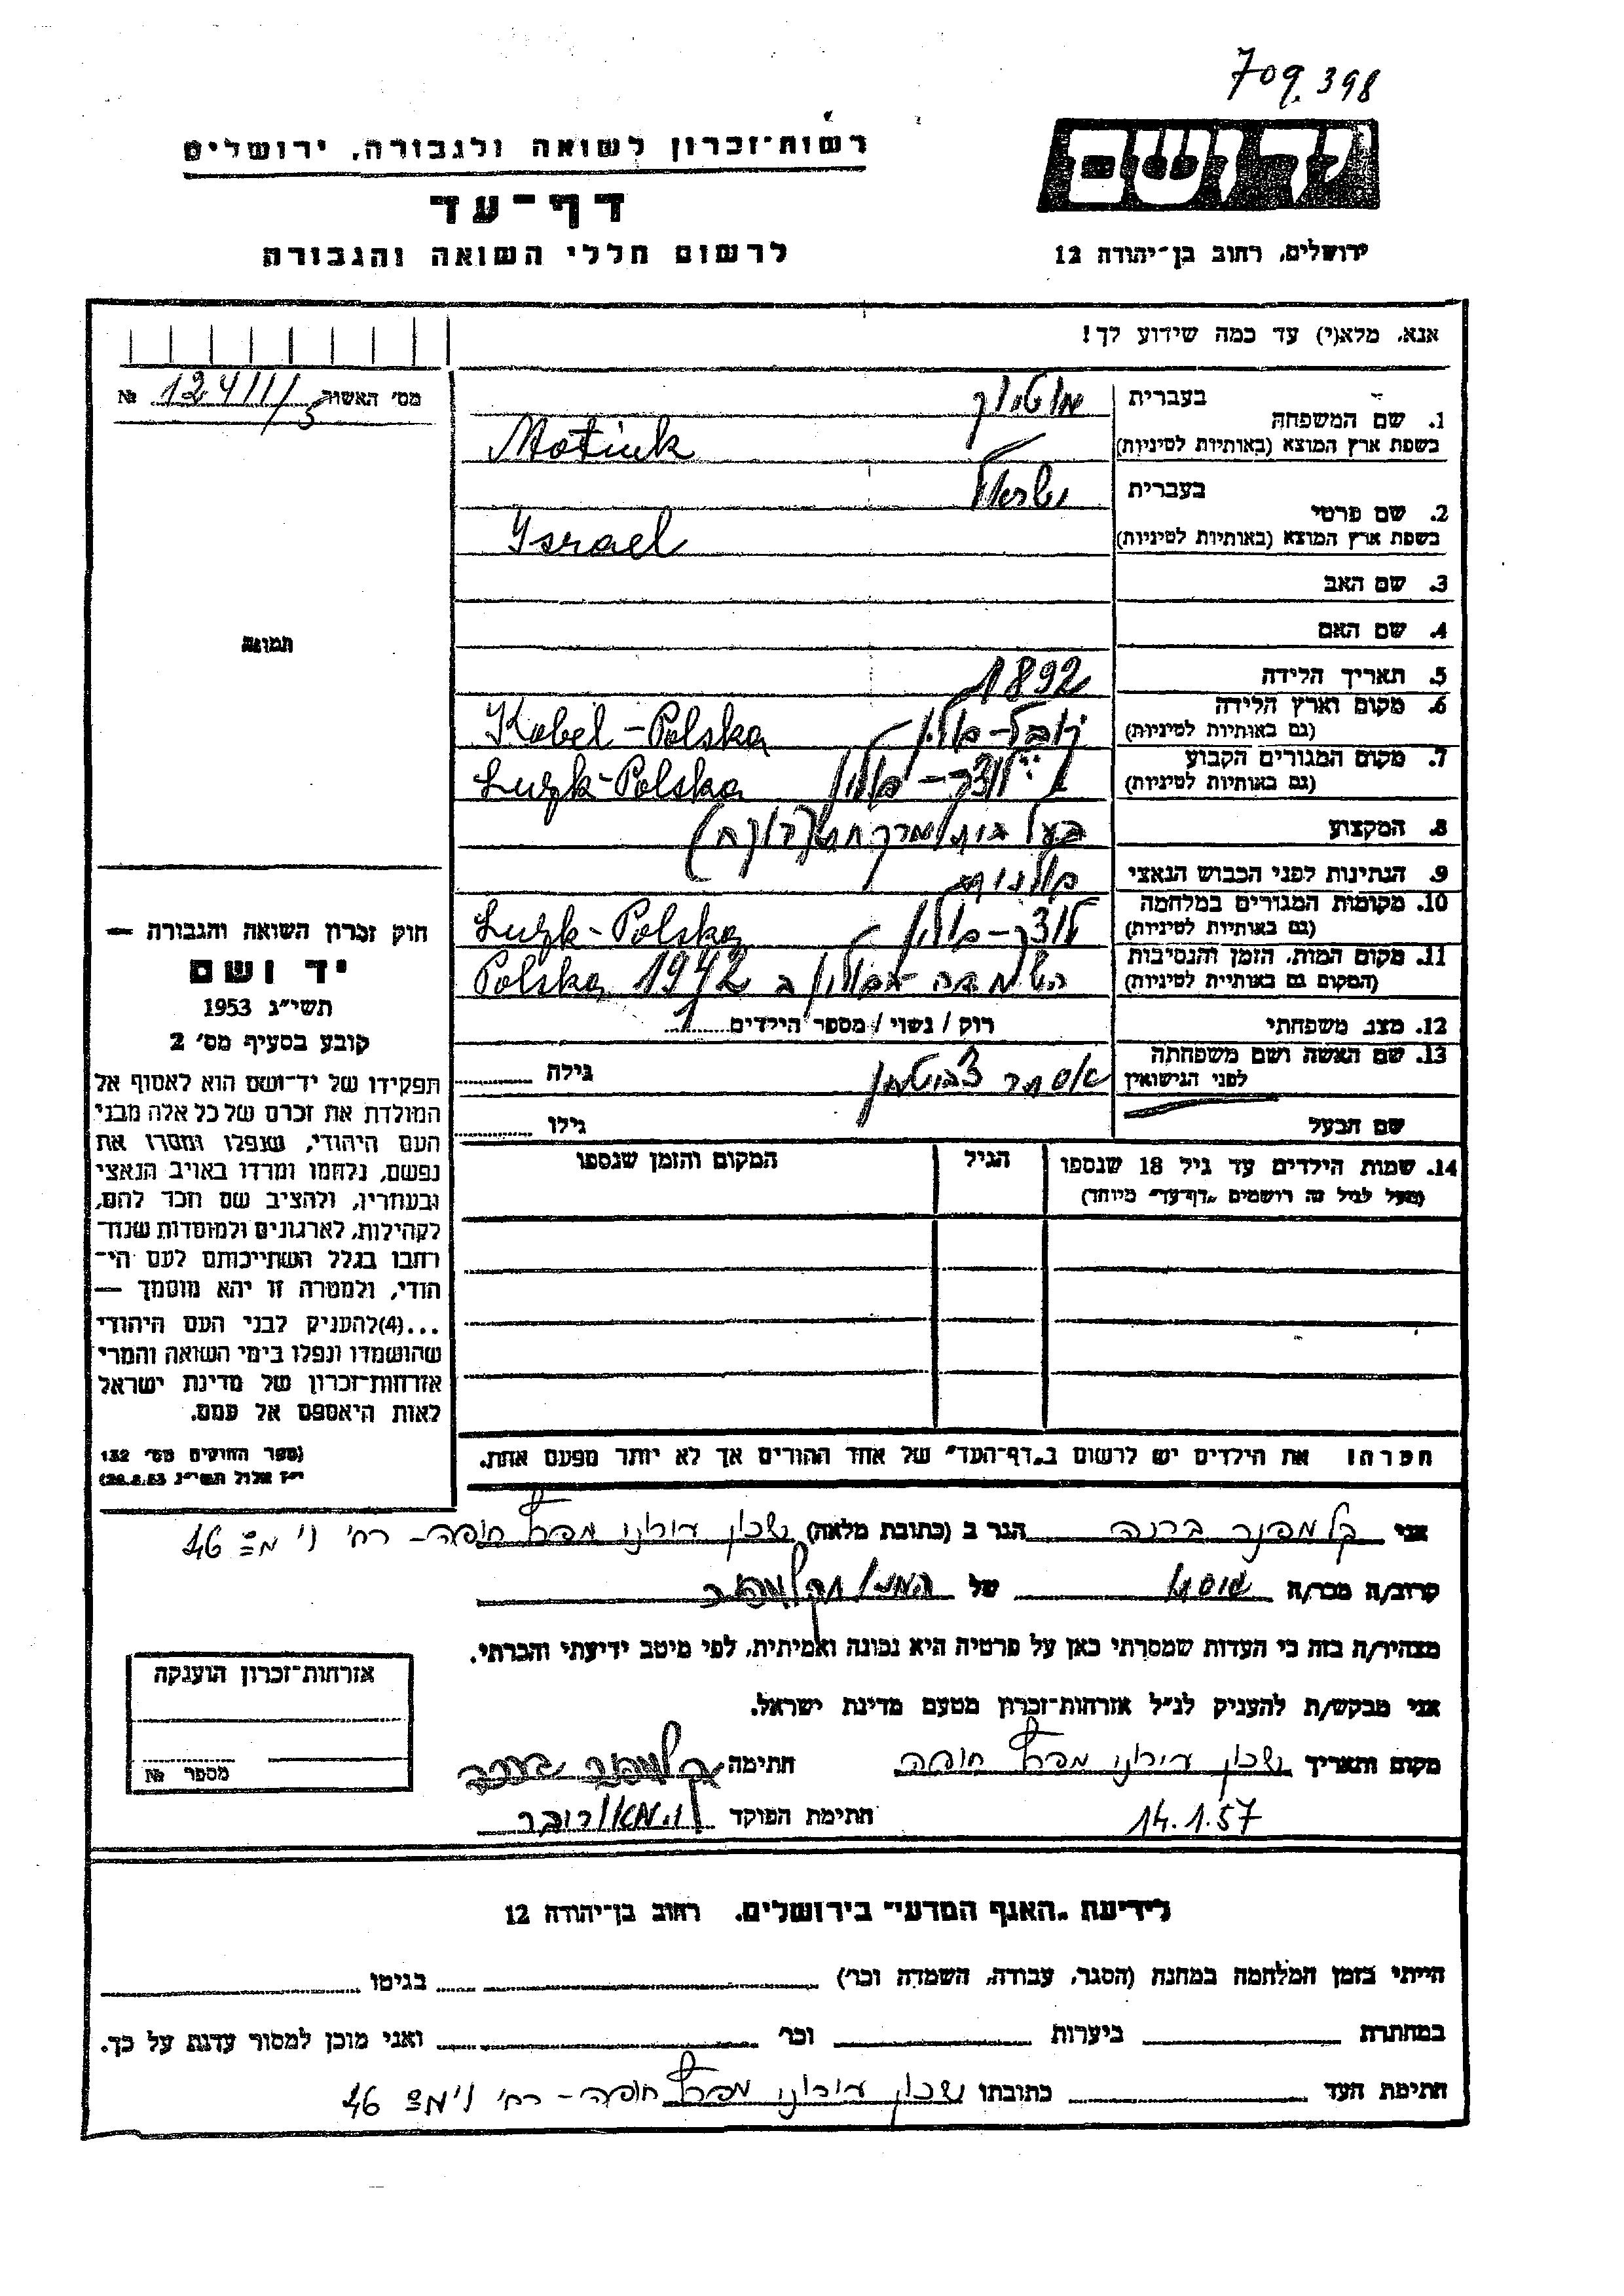 709.398
יד ושם
ירושלים, רחוב בן-יהודה 12
רשות-זכרון לשואה ולגבורה, ירושלים
דף-עד
לרשום חללי השואה והגבורה
אנא, מלא(י) עד כמה שידוע לך!
מס' האשור № 12411/5
1. שם המשפחה
בעברית מוטיוק
בשפת ארץ המוצא (באותיות לטיניות) Motiuk
2. שם פרטי
בעברית ישראל
בשפת ארץ המוצא (באותיות לטיניות) Israel
3. שם האב
4. שם האם
5. תאריך הלידה 1892
6. מקום וארץ הלידה קובל-פולין Kobel-Polska
(גם באותיות לטיניות)
7. מקום המגורים הקבוע לוצק-פולין Luzk-Polska
(גם באותיות לטיניות)
8. המקצוע בעל בית/מרקחת (רוקח)
9. הנתינות לפני הכבוש הנאצי פולנית
10. מקומות המגורים במלחמה לוצק-פולין Luzk-Polska
(גם באותיות לטיניות)
11. מקום המות, הזמן והנסיבות השמדה בפולין ב 1942 Polska
(המקום גם באותיות לטיניות)
12. מצב משפחתי רוק / נשוי / מספר הילדים 1
13. שם האשה ושם משפחתה אסתר גילה
לפני הנישואין
שם הבעל גילו
14. שמות הילדים עד גיל 18 שנספו הגיל המקום והזמן שנספו
(מעל לגיל זה רושמים "דף-עד" מיוחד)
תמונה
חוק זכרון השואה והגבורה —
יד ושם
תשי"ג 1953
קובע בסעיף מס' 2
תפקידו של יד-ושם הוא לאסוף אל
המולדת את זכרם של כל אלה מבני
העם היהודי, שנפלו ומסרו את
נפשם, נלחמו ומרדו באויב הנאצי
ובעוזריו, ולהציב שם וזכר להם,
לקהילות, לארגונים ולמוסדות שנח-
רבו בגלל השתייכותם לעם הי-
הודי, ולמטרה זו יהא מוסמך —
...(4)להעניק לבני העם היהודי
שהושמדו ונפלו בימי השואה והמרי
אזרחות-זכרון של מדינת ישראל
לאות היאספם אל עמם.
(ספר החוקים מס' 132
י"ז אלול תשי"ג 28.8.53)
הערה! את הילדים יש לרשום ב"דף-העד" של אחד ההורים אך לא יותר מפעם אחת.
אני קלמפנר ברכה הגר ב (כתובת מלאה) שכון עירוני חיפה - רח' 46
קרוב/ה מכר/ה של
מצהיר/ה בזה כי העדות שמסרתי כאן על פרטיה היא נכונה ואמיתית, לפי מיטב ידיעתי והכרתי.
אני מבקש/ת להעניק לנ"ל אזרחות-זכרון מטעם מדינת ישראל.
מקום ותאריך שכון עירוני חיפה חתימה
14.1.57 חתימת הפוקד
אזרחות-זכרון הוענקה
מספר №
לידיעת "האגף המדעי" בירושלים, רחוב בן-יהודה 12
הייתי בזמן המלחמה במחנה (הסגר, עבודה, השמדה וכו') בגיטו
במחתרת ביערות וכו' ואני מוכן למסור עדות על כך.
חתימת העד כתובתו שכון עירוני חיפה - רח' 46